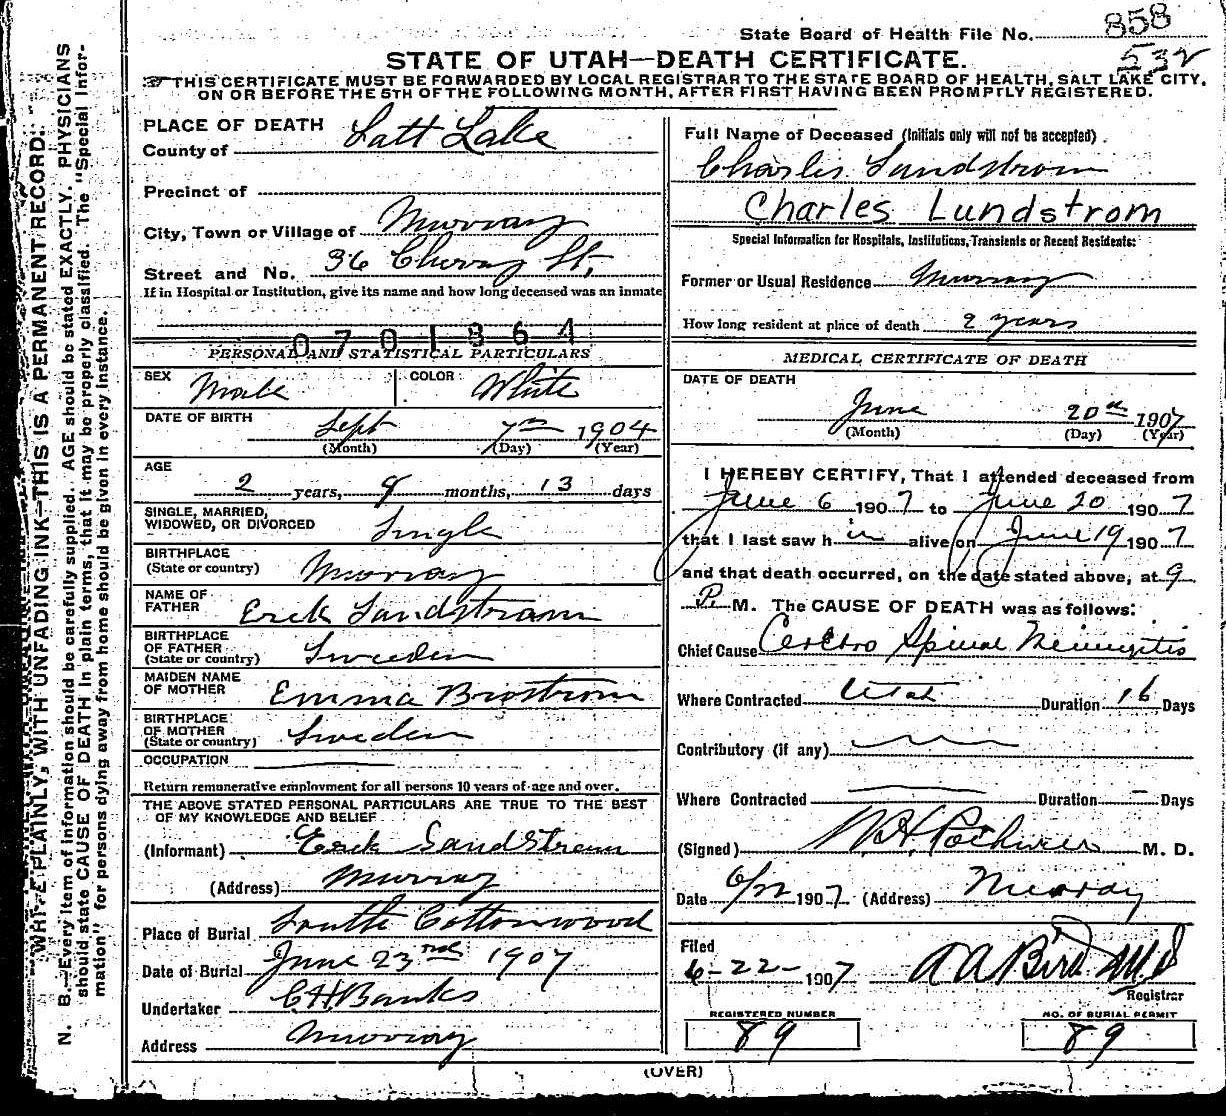 858
State Board of Health File No.
532
STATE OF UTAH—DEATH CERTIFICATE.
THIS CERTIFICATE MUST BE FORWARDED BY LOCAL REGISTRAR TO THE STATE BOARD OF HEALTH, SALT LAKE CITY,
ON OR BEFORE THE 5TH OF THE FOLLOWING MONTH, AFTER FIRST HAVING BEEN PROMPTLY REGISTERED.
N. B.—Every item of information should be carefully supplied. AGE should be stated EXACTLY. PHYSICIANS
should state CAUSE OF DEATH in plain terms, that it may be properly classified. The "Special Infor-
mation" for persons dying away from home should be given in every instance.
WRITE PLAINLY, WITH UNFADING INK—THIS IS A PERMANENT RECORD.
PLACE OF DEATH
County of Salt Lake
Precinct of
City, Town or Village of Murray
Street and No. 36 Cherry St,
If in Hospital or Institution, give its name and how long deceased was an inmate
0701864
PERSONAL AND STATISTICAL PARTICULARS
SEX Male COLOR White
DATE OF BIRTH Sept 7th 1904
(Month) (Day) (Year)
AGE
2 years, 9 months, 13 days
SINGLE, MARRIED,
WIDOWED, OR DIVORCED Single
BIRTHPLACE
(State or country) Murray
NAME OF
FATHER Erck Lundstrom
BIRTHPLACE
OF FATHER
(State or country) Sweden
MAIDEN NAME
OF MOTHER Emma Brostrom
BIRTHPLACE
OF MOTHER
(State or country) Sweden
OCCUPATION
Return remunerative employment for all persons 10 years of age and over.
THE ABOVE STATED PERSONAL PARTICULARS ARE TRUE TO THE BEST
OF MY KNOWLEDGE AND BELIEF
(Informant) Erck Lundstrom
(Address) Murray
Place of Burial South Cottonwood
Date of Burial June 23rd 1907
Undertaker C.H. Banks
Address Murray
Full Name of Deceased (Initials only will not be accepted)
Charles Lundstrom
Charles Lundstrom
Special Information for Hospitals, Institutions, Transients or Recent Residents:
Former or Usual Residence Murray
How long resident at place of death 2 years
MEDICAL CERTIFICATE OF DEATH
DATE OF DEATH
June 20th 1907
(Month) (Day) (Year)
I HEREBY CERTIFY, That I attended deceased from
June 6 1907 to June 20 1907
that I last saw him alive on June 19 1907
and that death occurred, on the date stated above, at 9
P. M. The CAUSE OF DEATH was as follows:
Chief Cause Cerebro Spinal Meningitis
Where Contracted Utah Duration 16 Days
Contributory (if any)
Where Contracted Duration — Days
(Signed) M. D.
Date 6/22 1907. (Address) Murray
Filed
6-22- 1907 A A Bird M.D
Registrar
REGISTERED NUMBER
89
NO. OF BURIAL PERMIT
89
(OVER)